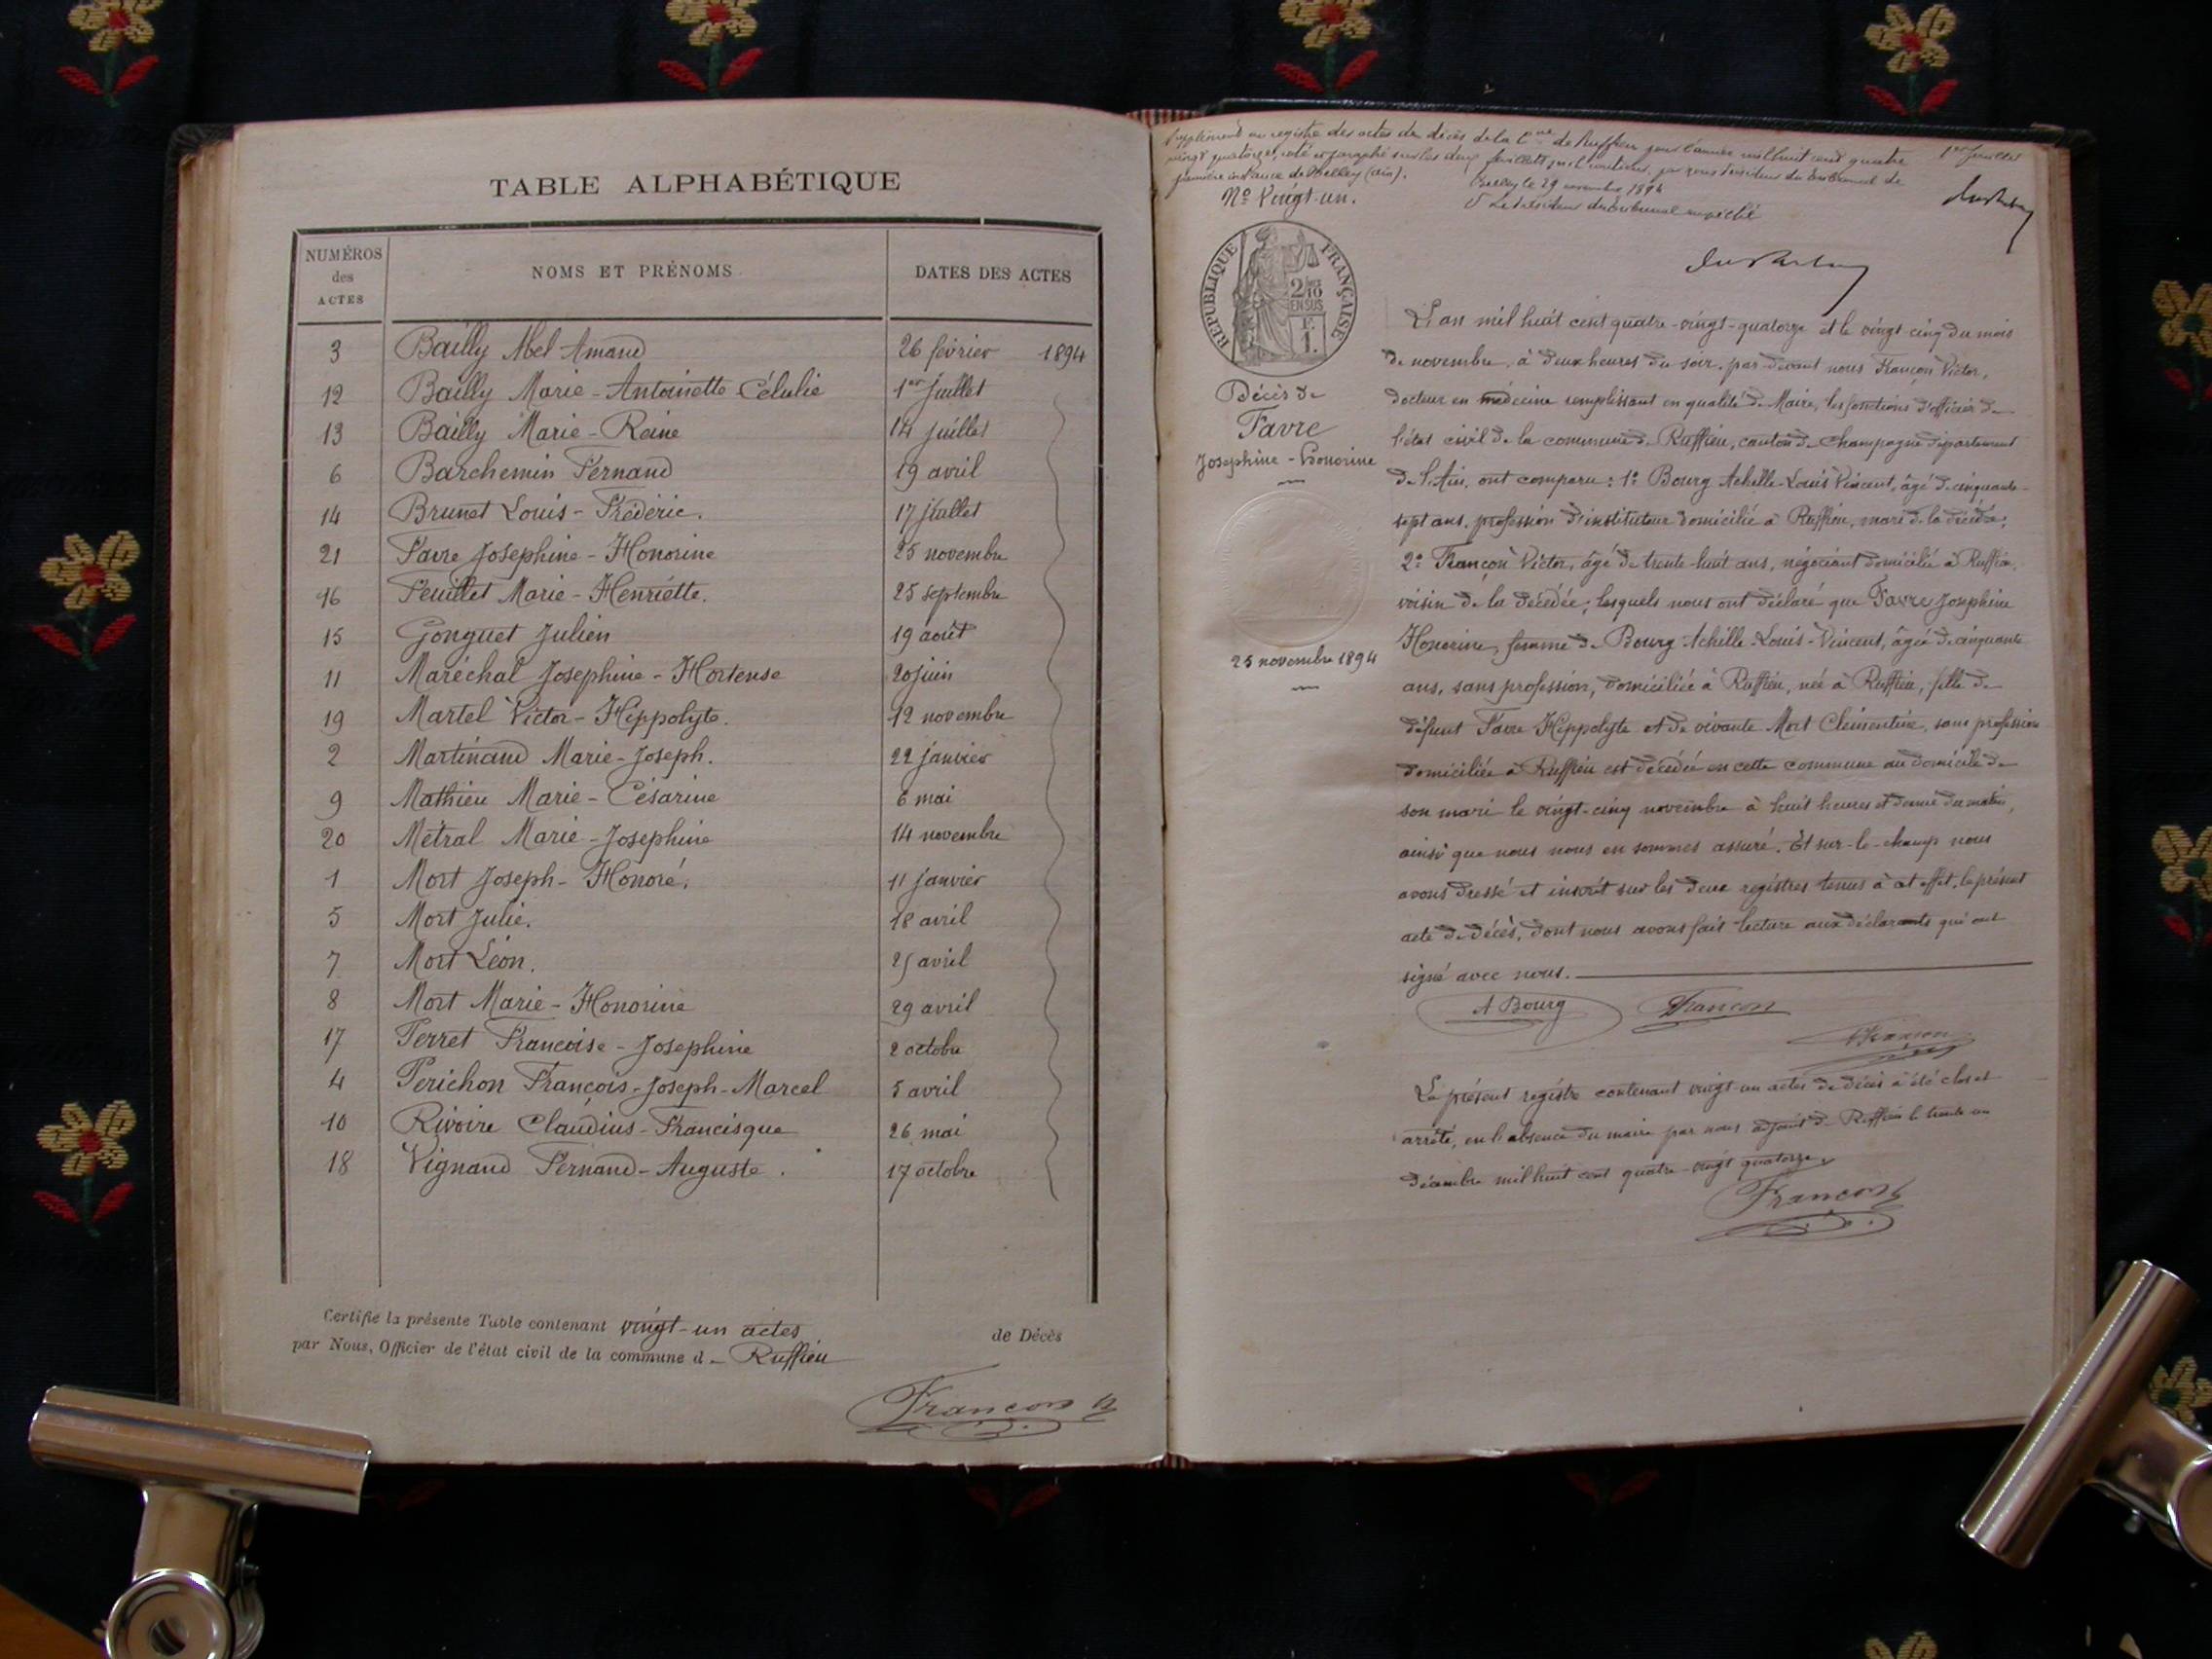 TABLE ALPHABÉTIQUE
NUMÉROS des ACTES NOMS ET PRÉNOMS DATES DES ACTES
3 Bailly Abel Amand 26 février 1894
12 Bailly Marie-Antoinette Célulie 1er juillet
13 Bailly Marie-Reine 14 juillet
6 Barchemin Fernand 19 avril
14 Brunet Louis-Frédéric. 17 juillet
21 Favre Josephine-Honorine 25 novembre
16 Feuillet Marie-Henriette. 25 septembre
15 Gonguet Julien 19 août
11 Maréchal Josephine-Hortense 20 juin
19 Martel Victor-Hippolyte. 12 novembre
2 Martinand Marie-Joseph. 22 janvier
9 Mathieu Marie-Césarine 6 mai
20 Métral Marie-Josephine 14 novembre
1 Mort Joseph-Honoré. 11 janvier
5 Mort Julie. 18 avril
7 Mort Léon. 25 avril
8 Mort Marie-Honorine 29 avril
17 Perret Francoise-Josephine 2 octobre
4 Perichon François-Joseph-Marcel 5 avril
10 Rivoire Claudius-Francisque 26 mai
18 Vignand Fernand-Auguste. 17 octobre
Certifié la présente Table contenant vingt-un actes de Décès
par Nous, Officier de l'état civil de la commune d- Ruffieu
Françon
Supplément au registre des actes de décès de la Cne de Ruffieu pour l'année mil huit cent quatre
vingt quatorze, coté et paraphé sur les deux feuillets qu'il contient, par nous Président du Tribunal de
première instance de Belley (Ain).
Belley le 29 novembre 1894
Le Président du Tribunal
1er feuillet
No Vingt-un.
RÉPUBLIQUE FRANÇAISE
2/10 EN SUS
F. 1.
Décès de
Favre
Josephine-Honorine
25 novembre 1894
L'an mil huit cent quatre-vingt-quatorze et le vingt-cinq du mois
de novembre, à deux heures du soir, par-devant nous Françon Victor,
docteur en médecine remplissant en qualité de Maire, les fonctions d'officier de
l'état civil de la commune de Ruffieu, canton de Champagne département
de l'Ain, ont comparu: 1o Bourg Achille-Louis Vincent, âgé de cinquante-
sept ans, profession d'instituteur domicilié à Ruffieu, mari de la décédée;
2o Françon Victor, âgé de trente-huit ans, négociant domicilié à Ruffieu,
voisin de la décédée; lesquels nous ont déclaré que Favre Josephine
Honorine, femme de Bourg Achille-Louis-Vincent, âgée de cinquante
ans, sans profession, domiciliée à Ruffieu, née à Ruffieu, fille de
défunt Favre Hippolyte et de vivante Mort Clémentine, sans profession
domiciliée à Ruffieu est décédée en cette commune au domicile de
son mari le vingt-cinq novembre à huit heures et demie du matin,
ainsi que nous nous en sommes assuré. Et sur-le-champ nous
avons dressé et inscrit sur les deux registres tenus à cet effet, le présent
acte de décès, dont nous avons fait lecture aux déclarants qui ont
signé avec nous.
A Bourg Françon
Françon
Le présent registre contenant vingt-un actes de décès a été clos et
arrêté, en l'absence du maire par nous adjoint de Ruffieu le trente-un
décembre mil huit cent quatre-vingt quatorze.
Françon